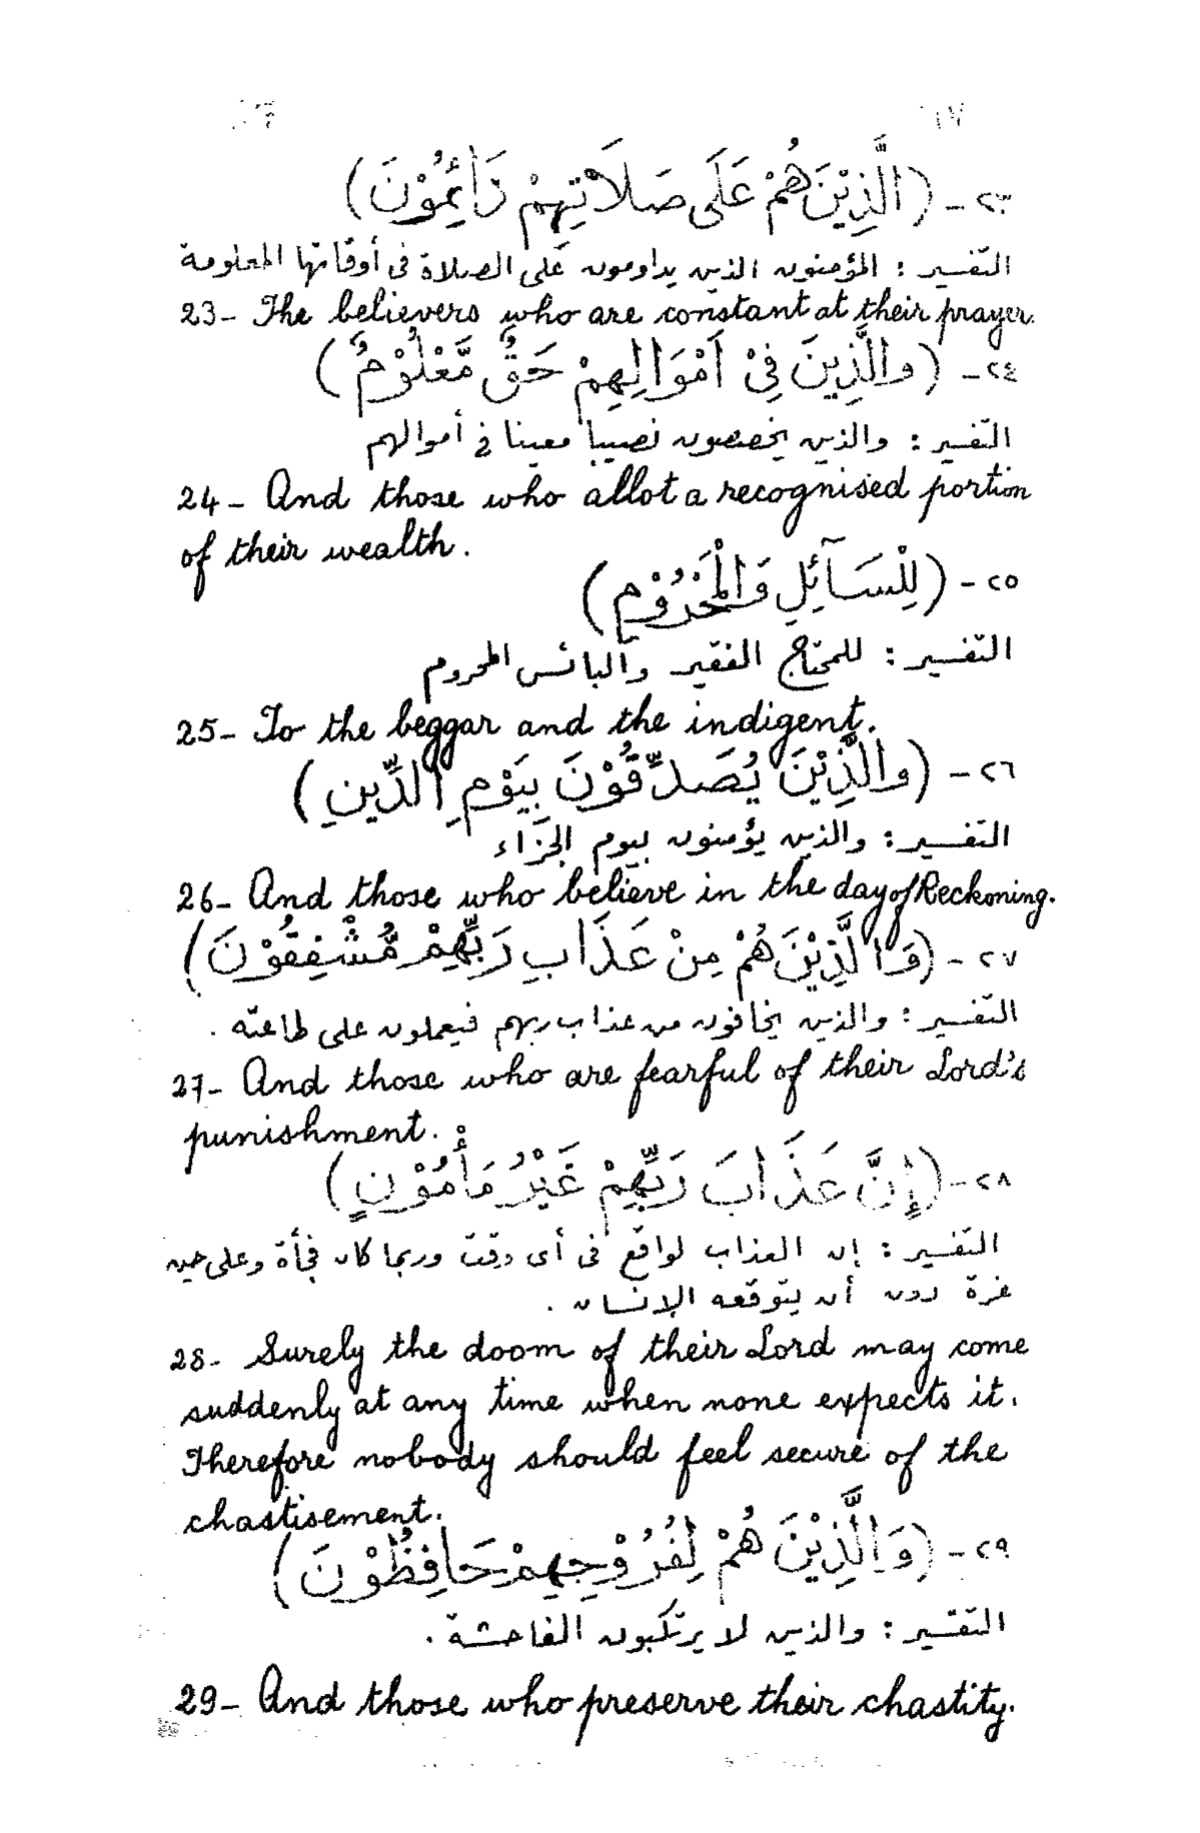 ٢٣ - (الَّذِيْنَ هُمْ عَلَى صَلَاتِهِمْ دَائِمُوْنَ)
التفسير : المؤمنون الذين يداومون على الصلاة فى أوقاتها المعلومة
23- The believers who are constant at their prayer.
٢٤ - (والَّذِينَ فِىْ اَمْوَالِهِمْ حَقٌّ مَّعْلُوْمٌ)
التفسير : والذين يخصصون نصيبا معينا فى أموالهم
24- And those who allot a recognised portion
of their wealth.
٢٥ - (لِلْسَآئِلِ وَالْمَحْرُوْمِ)
التفسير : للمحتاج الفقير والبائس المحروم
25- To the beggar and the indigent.
٢٦ - (والَّذِيْنَ يُصَدِّقُوْنَ بِيَوْمِ الدِّينِ)
التفسير : والذين يؤمنون بيوم الجزاء
26- And those who believe in the day of Reckoning.
٢٧ - (وَالَّذِيْنَ هُمْ مِنْ عَذَابِ رَبِّهِمْ مُّشْفِقُوْنَ)
التفسير : والذين يخافون من عذاب ربهم فيعملون على طاعته .
27- And those who are fearful of their Lord's
punishment.
٢٨ - (إِنَّ عَذَابَ رَبِّهِمْ غَيْرُ مَأْمُوْنٍ)
التفسير : إن العذاب لواقع فى أى وقت وربما كان فجأة وعلى حين
غرة دون أن يتوقعه الإنسان .
28- Surely the doom of their Lord may come
suddenly at any time when none expects it.
Therefore nobody should feel secure of the
chastisement.
٢٩ - (وَالَّذِيْنَ هُمْ لِفُرُوْجِهِمْ حَافِظُوْنَ)
التفسير : والذين لا يرتكبون الفاحشة .
29- And those who preserve their chastity.